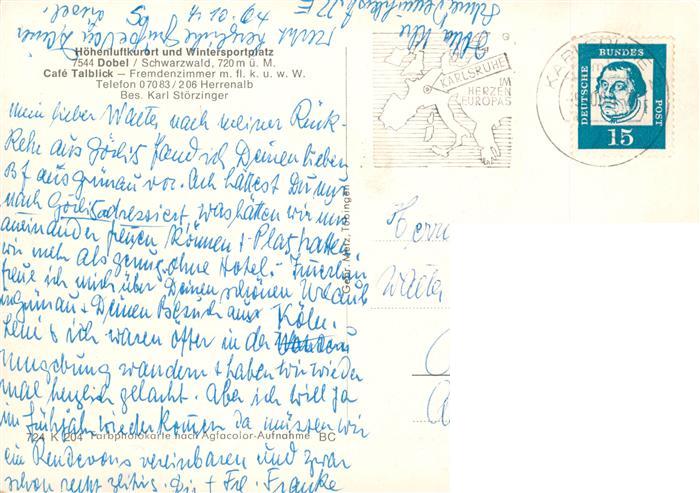 Höhenluftkurort und Wintersportplatz
7544 Dobel / Schwarzwald, 720 m ü. M.
Café Talblick — Fremdenzimmer m. fl. k. u. w. W.
Telefon 07083 / 206 Herrenalb
Bes. Karl Störzinger
mein lieber Walter nach meiner Rück-
kehr aus Görlis fand ich Deinen lieben
Bf aus Grünau vor. Ach hättest Du nur
nach Görlis adressiert, was hätten wir uns
aneinander freuen können + Platz hatten
wir mehr als genug, ohne Hotel. Immerhin
freue ich mich über Deinen schönen Urlaub
in Grünau + Deinen Besuch aus Köln.
Leni + ich waren öfter in der
Umgebung wandern + haben wir wieder
mal herzlich gelacht. Aber ich will ja
im Frühjahr wiederkommen da müssen wir
ein Rendevous vereinbaren und zwar
schon recht zeitig. Die + Frl. Franke
herzliche Grüße von Deiner
724 K 204 Farbphotokarte nach Agfacolor-Aufnahme BC
Gebr. Metz, Tübingen
KARLSRUHE
IM
HERZEN
EUROPAS
KARLSRUHE
DEUTSCHE BUNDESPOST
15
Herrn
Walter